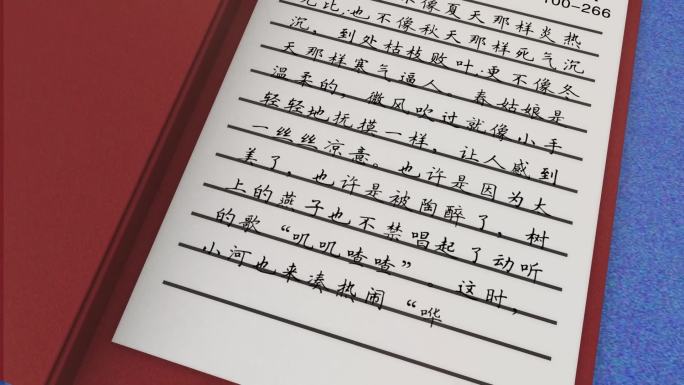 100-266
不像夏天那样炎热
无比.也不像秋天那样死气沉
沉，到处枯枝败叶.更不像冬
天那样寒气逼人。春姑娘是
温柔的，微风吹过就像小手
轻轻地抚摸一样，让人感到
一丝丝凉意。也许是因为太
美了，也许是被陶醉了，树
上的燕子也不禁唱起了动听
的歌“叽叽喳喳”。这时，
小河也来凑热闹“哗